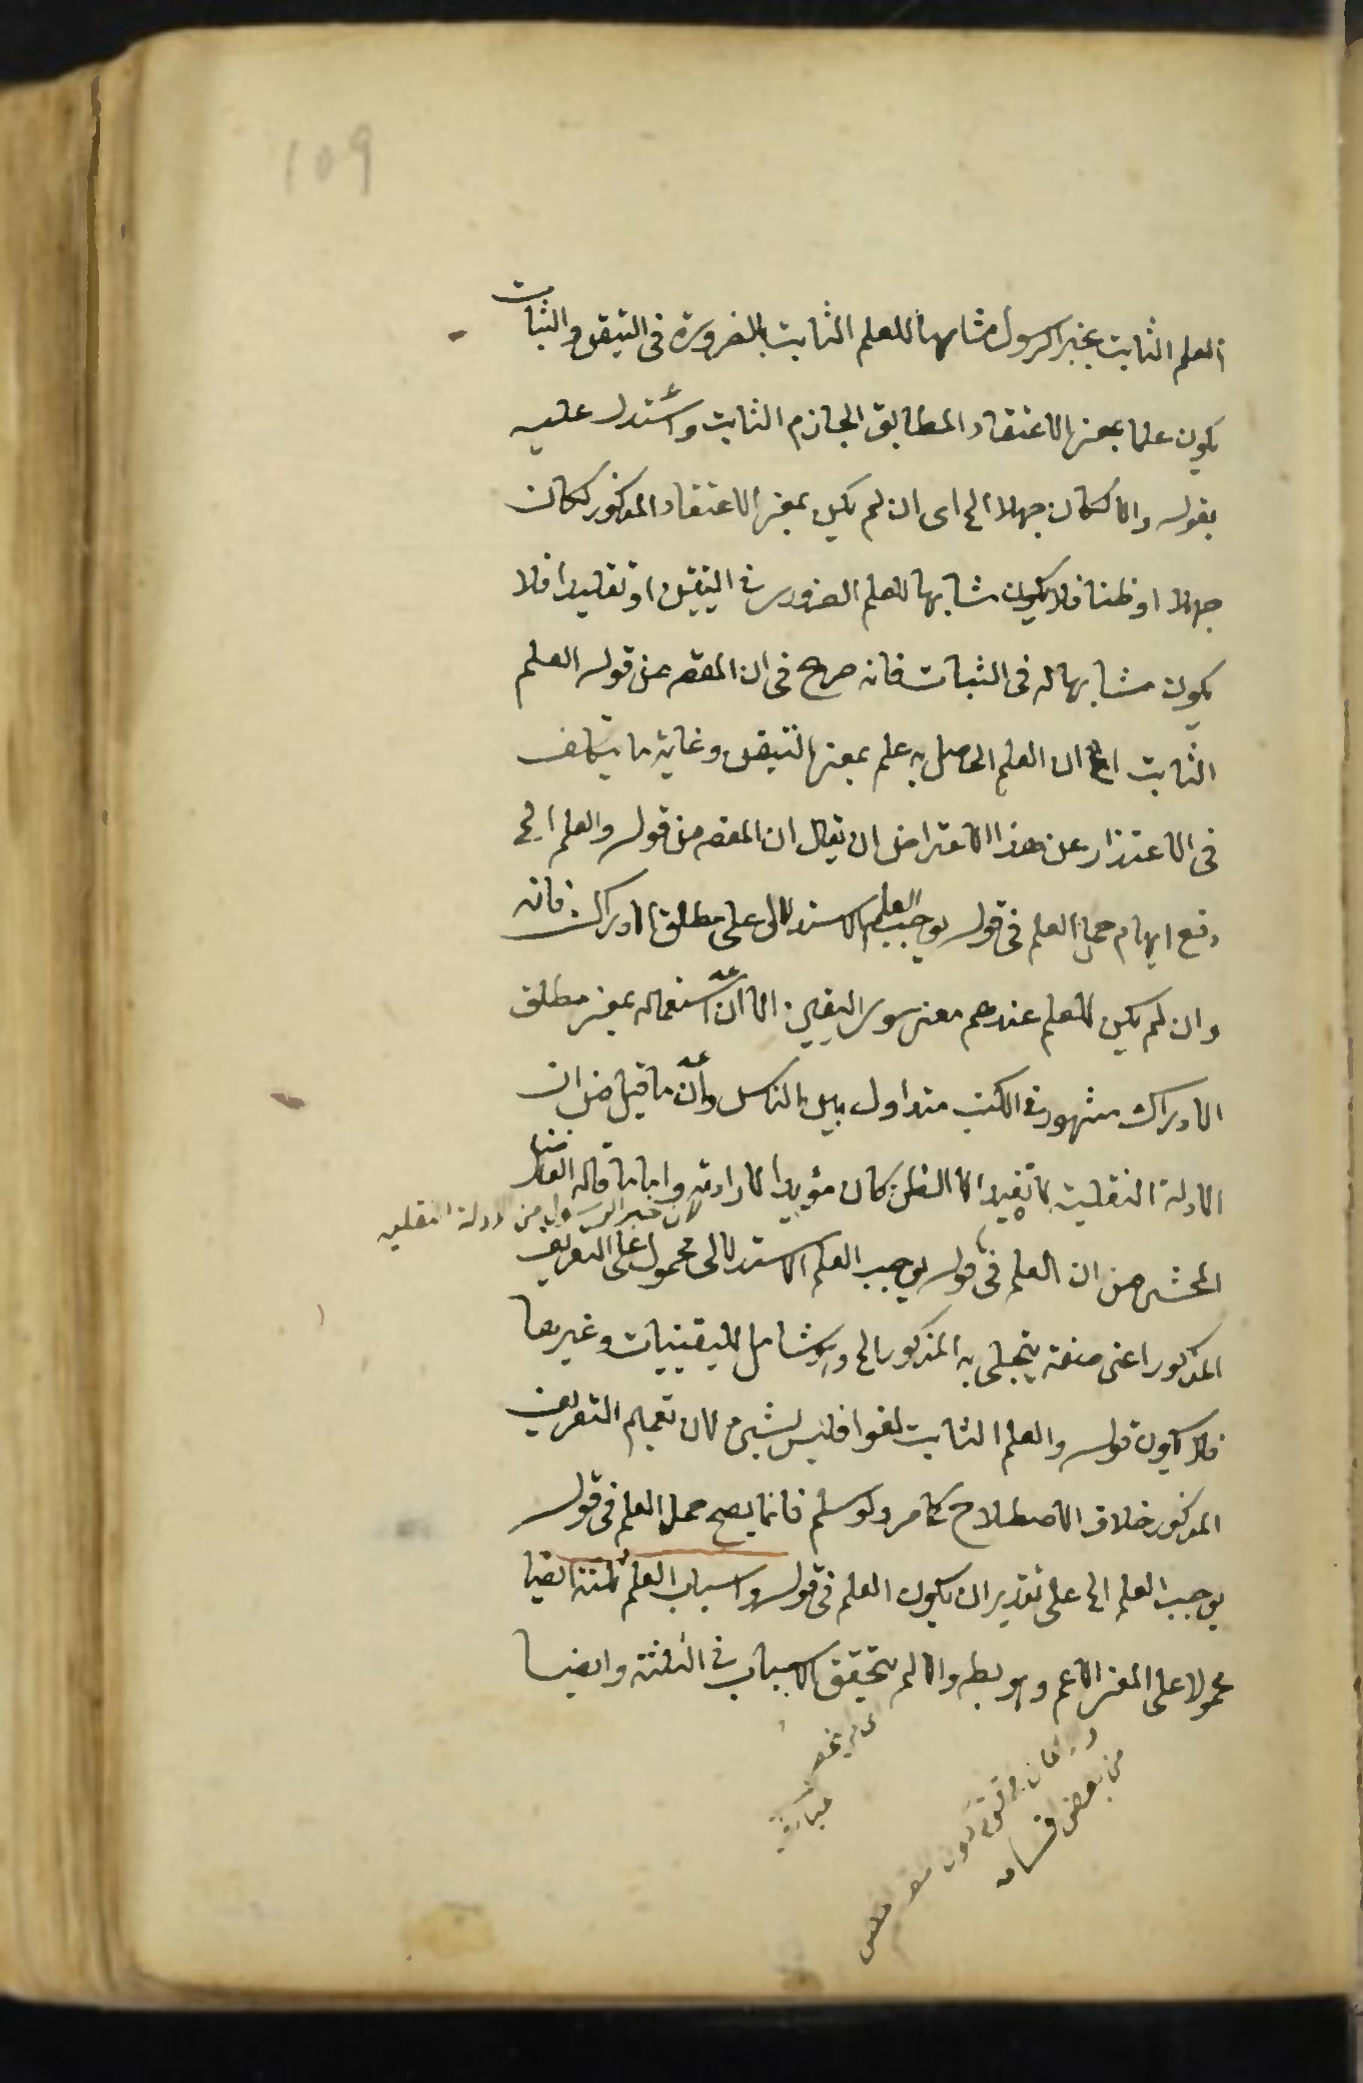 109
العلم الثابت بخبر الرسول مشابها للعلم الثابت بالضرورة فى التيقن والثبات
يكون علما بمعنى الاعتقاد المطابق الجازم الثابت واستدل عليه
بقوله والا لكان جهلا الخ اى ان لم يكن بمعنى الاعتقاد المذكور لكان
جهلا او ظنا فلا يكون مشابها للعلم الضرورى فى التيقن او تقليدا فلا
يكون مشابها له فى الثبات فانه صرح فى ان المقصـ من قوله العلم
الثابت الخ ان العلم الحاصل به علم بمعنى التيقن وغاية ما يتكلف
فى الاعتذار عن هذا الاعتراض ان يقال ان المقصـ من قوله والعلم الخ
دفع ايهام حمل العلم فى قوله يوجب العلم الاستدلالى على مطلق الادراك فانه
وان لم يكن للعلم عندهم معنى سوى اليقين الا ان استعماله بمعنى مطلق
الادراك مشهور فى الكتب متداول بين الناس وان ما قيل من ان
الادلة النقلية لا تفيد الا الظن كان مؤيدا لارادته واما ما قاله الفاضل
لان خبر الرسول من الادلة النقلية
المحشى من ان العلم فى قوله يوجب العلم الاستدلالى محمول على التعريف
المذكور اعنى صفة يتجلى به المذكور الخ وهو شامل لليقينيات وغيرها
فلا يكون قوله والعلم الثابت لغوا فليس بشىء لان تعميم التعريف
المذكور خلاف الاصطلاح كما مر ولو سلم فانما يصح حمل العلم فى قوله
يوجب العلم الخ على تقدير ان يكون العلم فى قوله واسباب العلم ثلثة ايضا
محمولا على المعنى الاعم وهو بط والا لم يتحقق الاسباب فى الثلثة وايضا
من بعض اقسامه